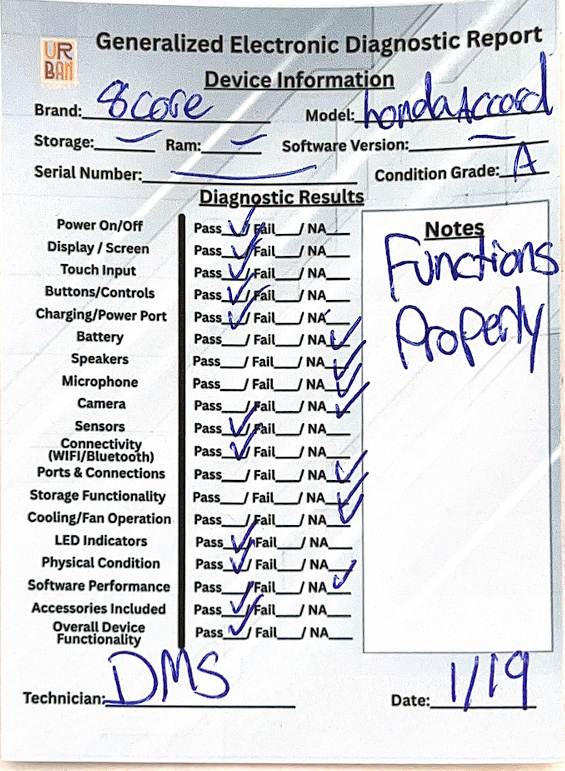 UR
BAN
Generalized Electronic Diagnostic Report
Device Information
Brand: 8core Model: honda Accord
Storage: — Ram: — Software Version: —
Serial Number: — Condition Grade: A
Diagnostic Results
Power On/Off Pass ✓/ Fail__/ NA__
Display / Screen Pass ✓/ Fail__/ NA__
Touch Input Pass ✓/ Fail__/ NA__
Buttons/Controls Pass ✓/ Fail__/ NA__
Charging/Power Port Pass ✓/ Fail__/ NA__
Battery Pass__/ Fail__/ NA ✓
Speakers Pass__/ Fail__/ NA ✓
Microphone Pass__/ Fail__/ NA ✓
Camera Pass__/ Fail__/ NA ✓
Sensors Pass ✓/ Fail__/ NA__
Connectivity
(WIFI/Bluetooth) Pass ✓/ Fail__/ NA__
Ports & Connections Pass__/ Fail__/ NA ✓
Storage Functionality Pass__/ Fail__/ NA ✓
Cooling/Fan Operation Pass__/ Fail__/ NA ✓
LED Indicators Pass ✓/ Fail__/ NA__
Physical Condition Pass ✓/ Fail__/ NA__
Software Performance Pass__/ Fail__/ NA ✓
Accessories Included Pass ✓/ Fail__/ NA__
Overall Device
Functionality Pass ✓/ Fail__/ NA__
Notes
Functions
Properly
Technician: DMS Date: 1/19